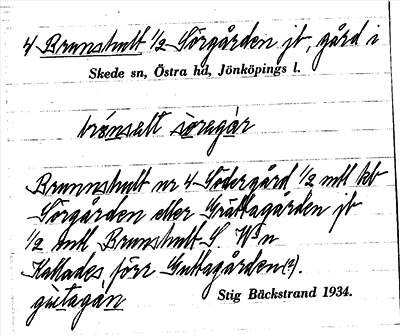 4 Brunshult 1/2 Sörgården jt, gård i
Skede sn, Östra hd, Jönköpings l.
brónselt sòregar
Brunnshult nr 4 Södergård 1/2 mtl kb
Sörgården eller Gräftagården jt
1/2 mtl Brunshult S. Wn
Kallades förr Guttagården(?).
gùtagán
Stig Bäckstrand 1934.